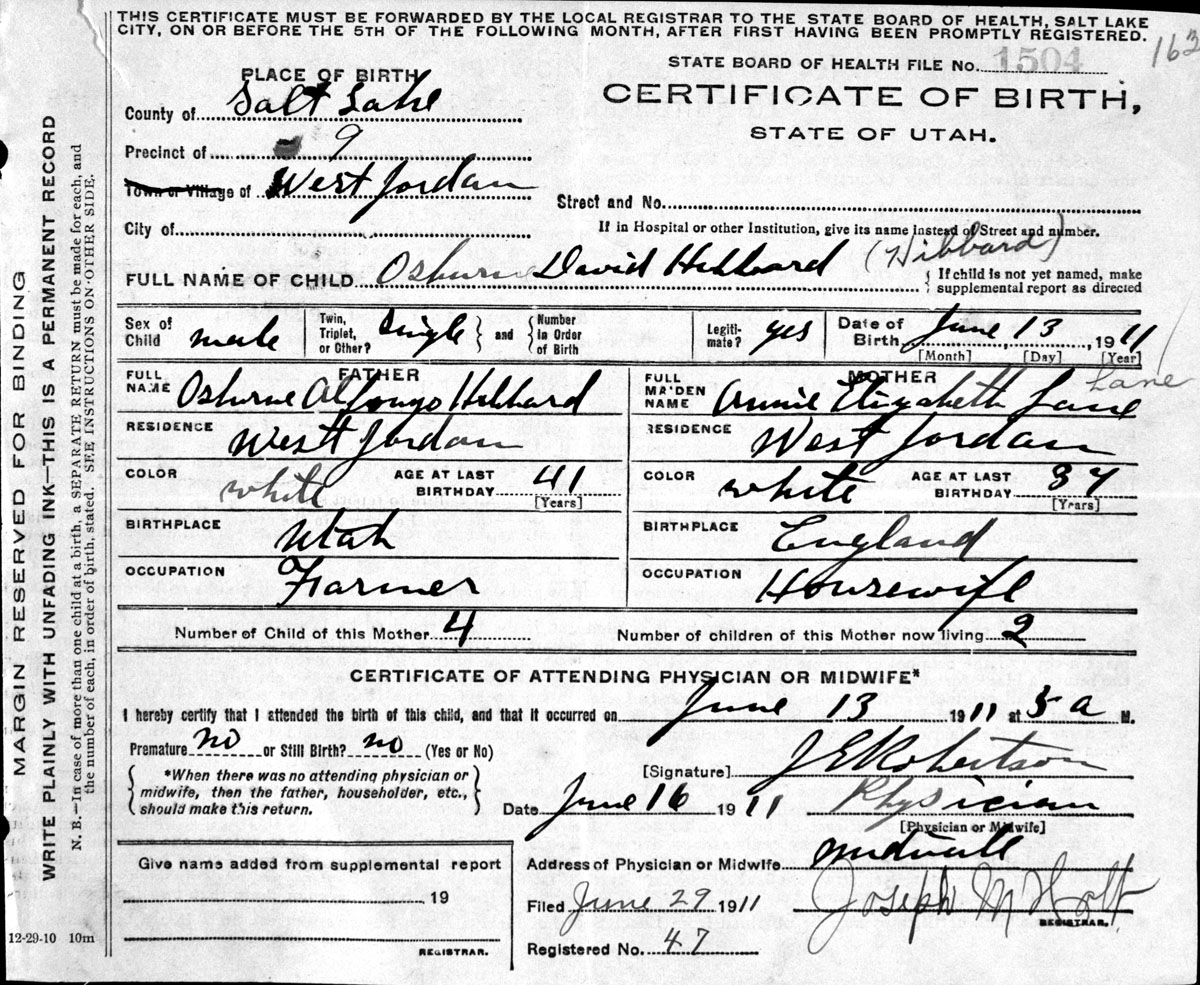 THIS CERTIFICATE MUST BE FORWARDED BY THE LOCAL REGISTRAR TO THE STATE BOARD OF HEALTH, SALT LAKE
CITY, ON OR BEFORE THE 5TH OF THE FOLLOWING MONTH, AFTER FIRST HAVING BEEN PROMPTLY REGISTERED.
163
STATE BOARD OF HEALTH FILE No. 1504
CERTIFICATE OF BIRTH,
STATE OF UTAH.
PLACE OF BIRTH
County of Salt Lake
Precinct of 9
Town or Village of West Jordan
Street and No.
City of
If in Hospital or other Institution, give its name instead of Street and number.
FULL NAME OF CHILD Osburne David Hibbard (Hibbard)
{ If child is not yet named, make
supplemental report as directed
Sex of Child male
Twin, Triplet, or Other? Single } and { Number in Order of Birth
Legitimate? yes
Date of Birth June 13, 1911
[Month] [Day] [Year]
FATHER
FULL NAME Osburne Alonzo Hibbard
RESIDENCE West Jordan
COLOR white AGE AT LAST BIRTHDAY 41
[Years]
BIRTHPLACE Utah
OCCUPATION Farmer
MOTHER
Lane
FULL MAIDEN NAME Annie Elizabeth Lane
RESIDENCE West Jordan
COLOR white AGE AT LAST BIRTHDAY 34
[Years]
BIRTHPLACE England
OCCUPATION Housewife
Number of Child of this Mother 4 Number of children of this Mother now living 2
CERTIFICATE OF ATTENDING PHYSICIAN OR MIDWIFE*
I hereby certify that I attended the birth of this child, and that it occurred on June 13 1911 at 5 a M.
Premature no or Still Birth? no (Yes or No)
{ *When there was no attending physician or
midwife, then the father, householder, etc.,
should make this return. }
[Signature] J E Robertson
Date June 16 1911 Physician
[Physician or Midwife]
Address of Physician or Midwife Midvale
Filed June 29 1911 Joseph M Holt
REGISTRAR.
Registered No. 47
Give name added from supplemental report
19
REGISTRAR.
12-29-10 10m
MARGIN RESERVED FOR BINDING
WRITE PLAINLY WITH UNFADING INK—THIS IS A PERMANENT RECORD
N. B.—In case of more than one child at a birth, a SEPARATE RETURN must be made for each, and
the number of each, in order of birth, stated. SEE INSTRUCTIONS ON OTHER SIDE.